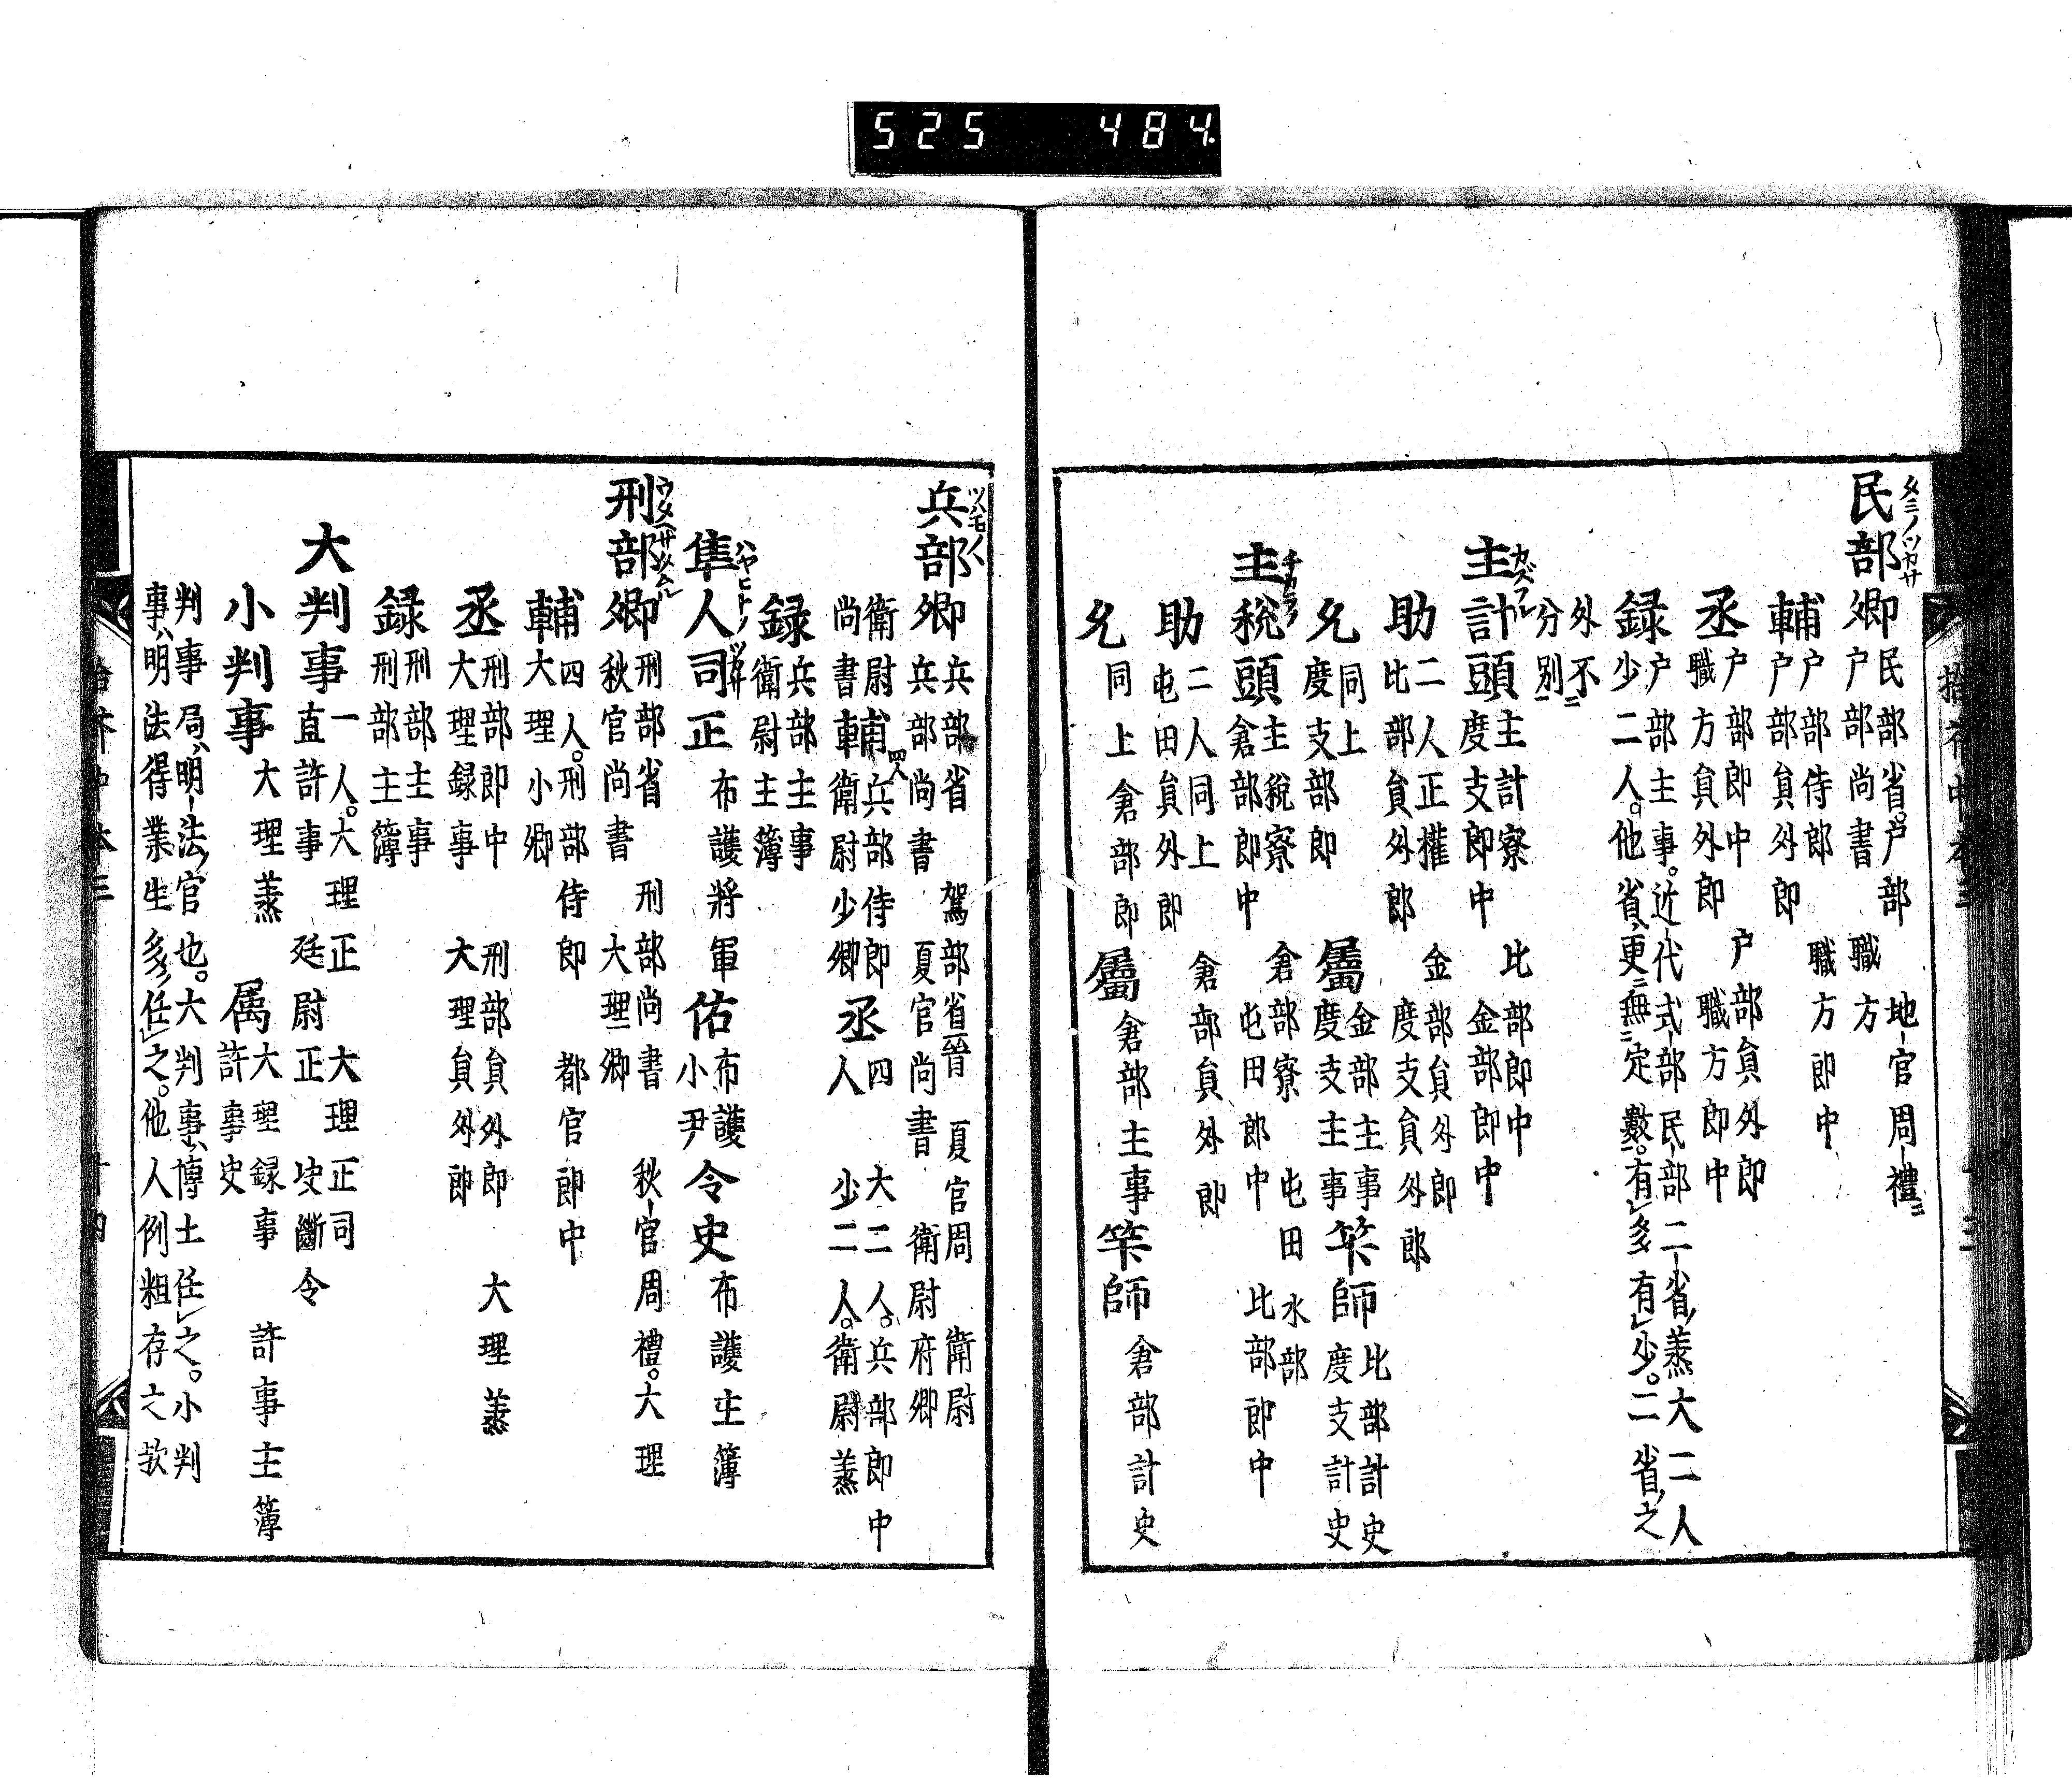 525 484
民部卿 民部省。戸部 地官周禮
戸部尚書 職方
輔 戸部侍郎 職方郎中
戸部員外郎
丞 戸部郎中 戸部員外郎
職方員外郎 職方郎中
録 戸部主事。近代式部民部二省、蒸大二人
少二人。他省、更無定數。有多有少。二省之
外不
分別
主計頭 主計寮 比部郎中
度支郎中 金部郎中
助 二人正權 金部員外郎
比部員外郎 度支員外郎
允 同上 屬 金部主事 筭師 比部計史
度支部郎 度支主事 度支計史
主税頭 主税寮 倉部寮 屯田 水部
倉部郎中 屯田郎中 比部郎中
助 二人同上 倉部員外郎
屯田員外郎
允 同上倉部郎 屬 倉部主事 筭師 倉部計史
兵部卿 兵部省 駕部省晉 夏官周 衛尉
兵部尚書 夏官尚書 衛尉府卿
衛尉 輔四人 兵部侍郎 丞 四 大二人。兵部郎中
尚書 衛尉少卿 人 少二人。衛尉蒸
録 兵部主事
衛尉主簿
隼人司正 布護將軍 佑 布護 令史 布護主簿
小尹
刑部卿 刑部省 刑部尚書 秋官周禮。大理
秋官尚書 大理卿
輔 四人。刑部侍郎 都官郎中
大理小卿
丞 刑部郎中 刑部員外郎 大理蒸
大理録事 大理員外郎
録 刑部主事
刑部主簿
大判事 一人。大理正 大理正司
直許事 廷尉正 決斷令
小判事 大理蒸 属 大理録事 許事主簿
許事史
判事局、明法官也。大判事、博士任之。小判
事、明法得業生多任之。他人例粗存之欤